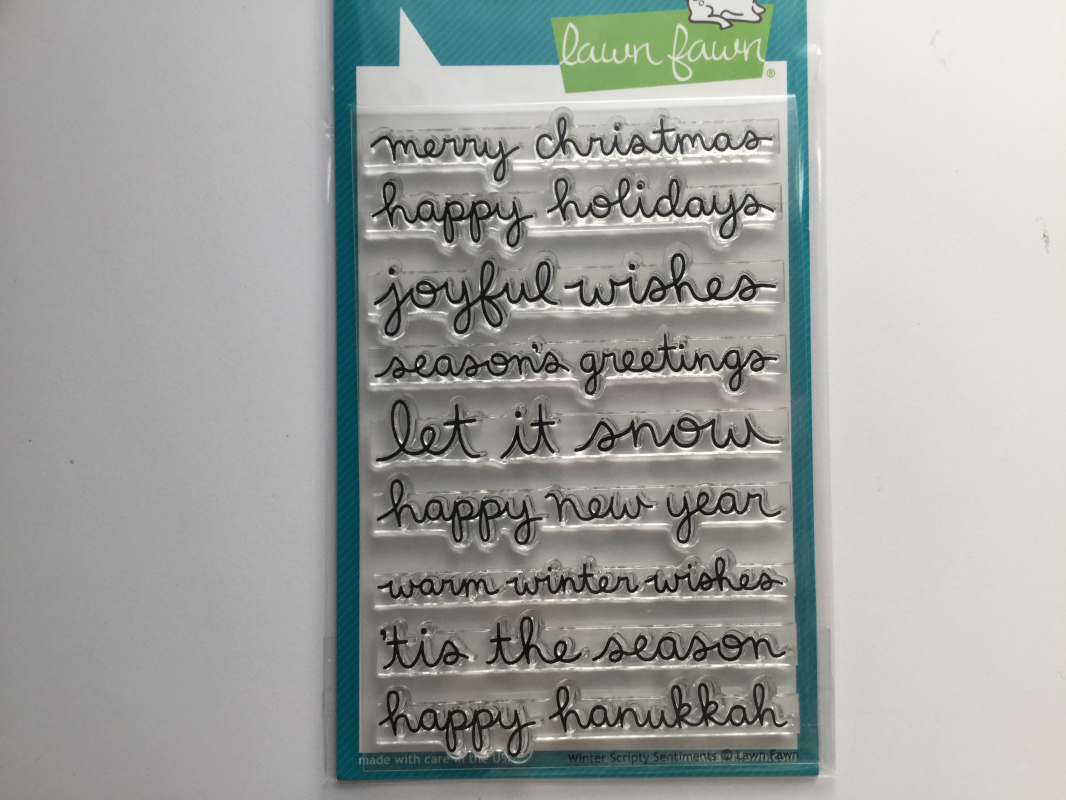 lawn fawn ®
merry christmas
happy holidays
joyful wishes
season's greetings
let it snow
happy new year
warm winter wishes
'tis the season
happy hanukkah
made with care in the USA Winter Scripty Sentiments © Lawn Fawn